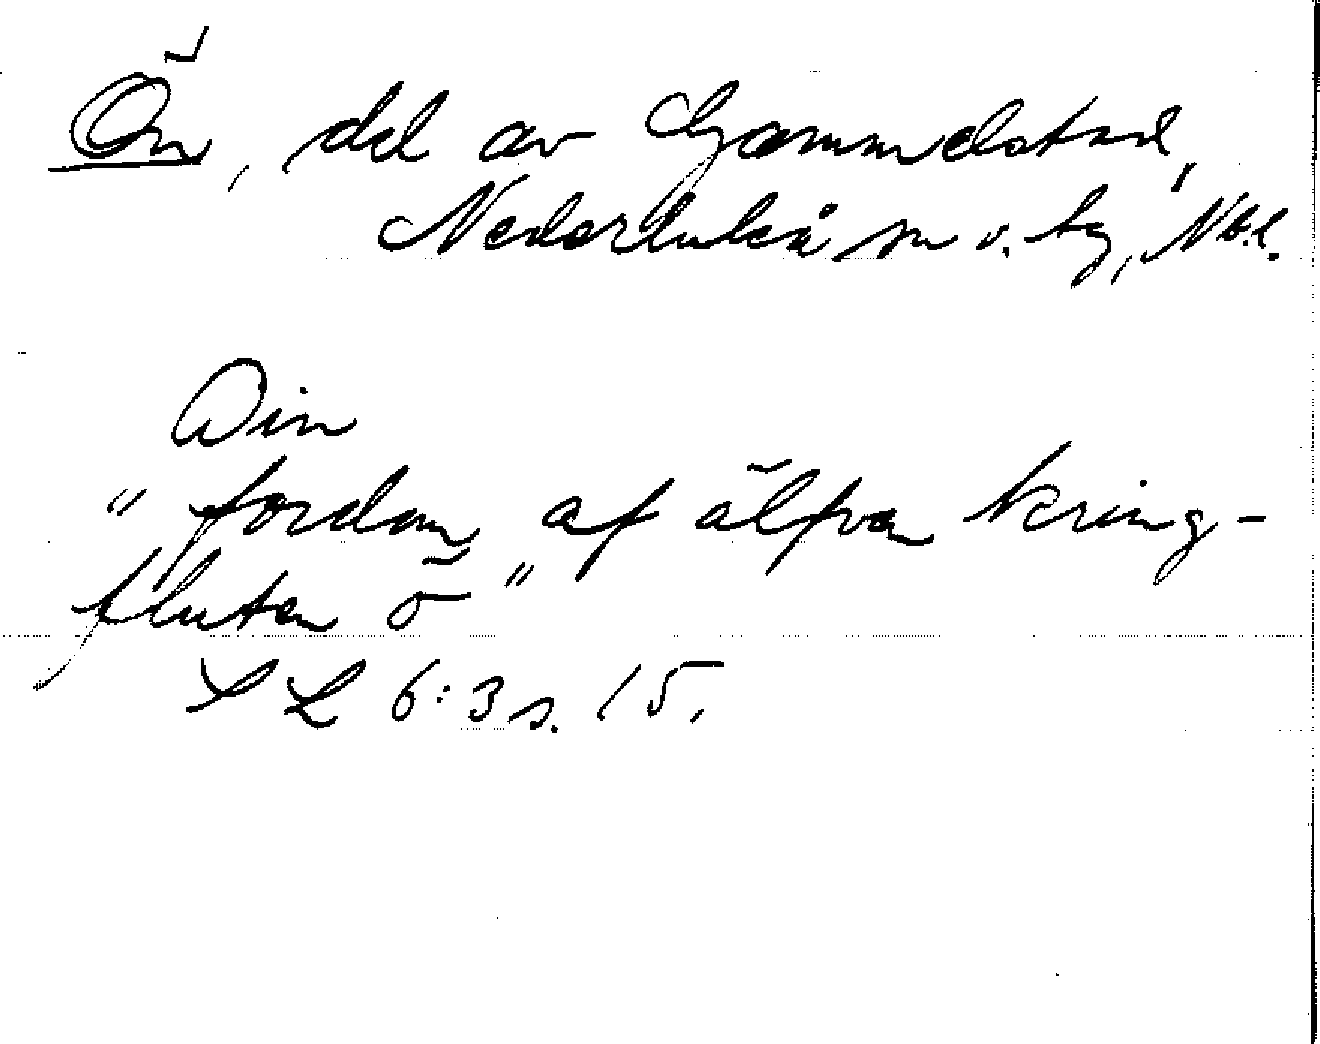 Ön, del av Gammelstad,
Nederluleå sn o. tg, Nbl.
Öin
"fordom af älfvan kring-
fluten ö"
SL 6:3 s. 15.